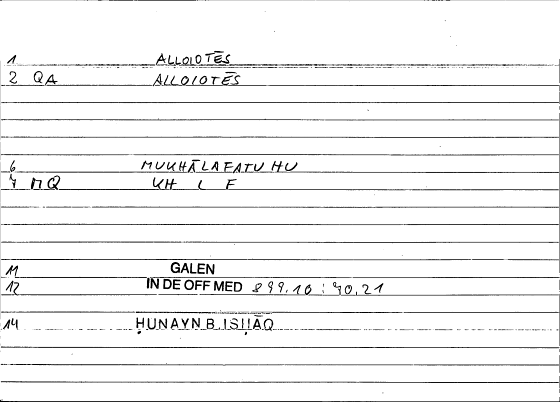 1 ALLOIOTĒS
2 QA ALLOIOTĒS
6 MUKHĀLAFATU HU
7 MQ KH L F
11 GALEN
12 IN DE OFF MED 899.10 : 70.21
14 ḤUNAYN B. ISḤĀQ